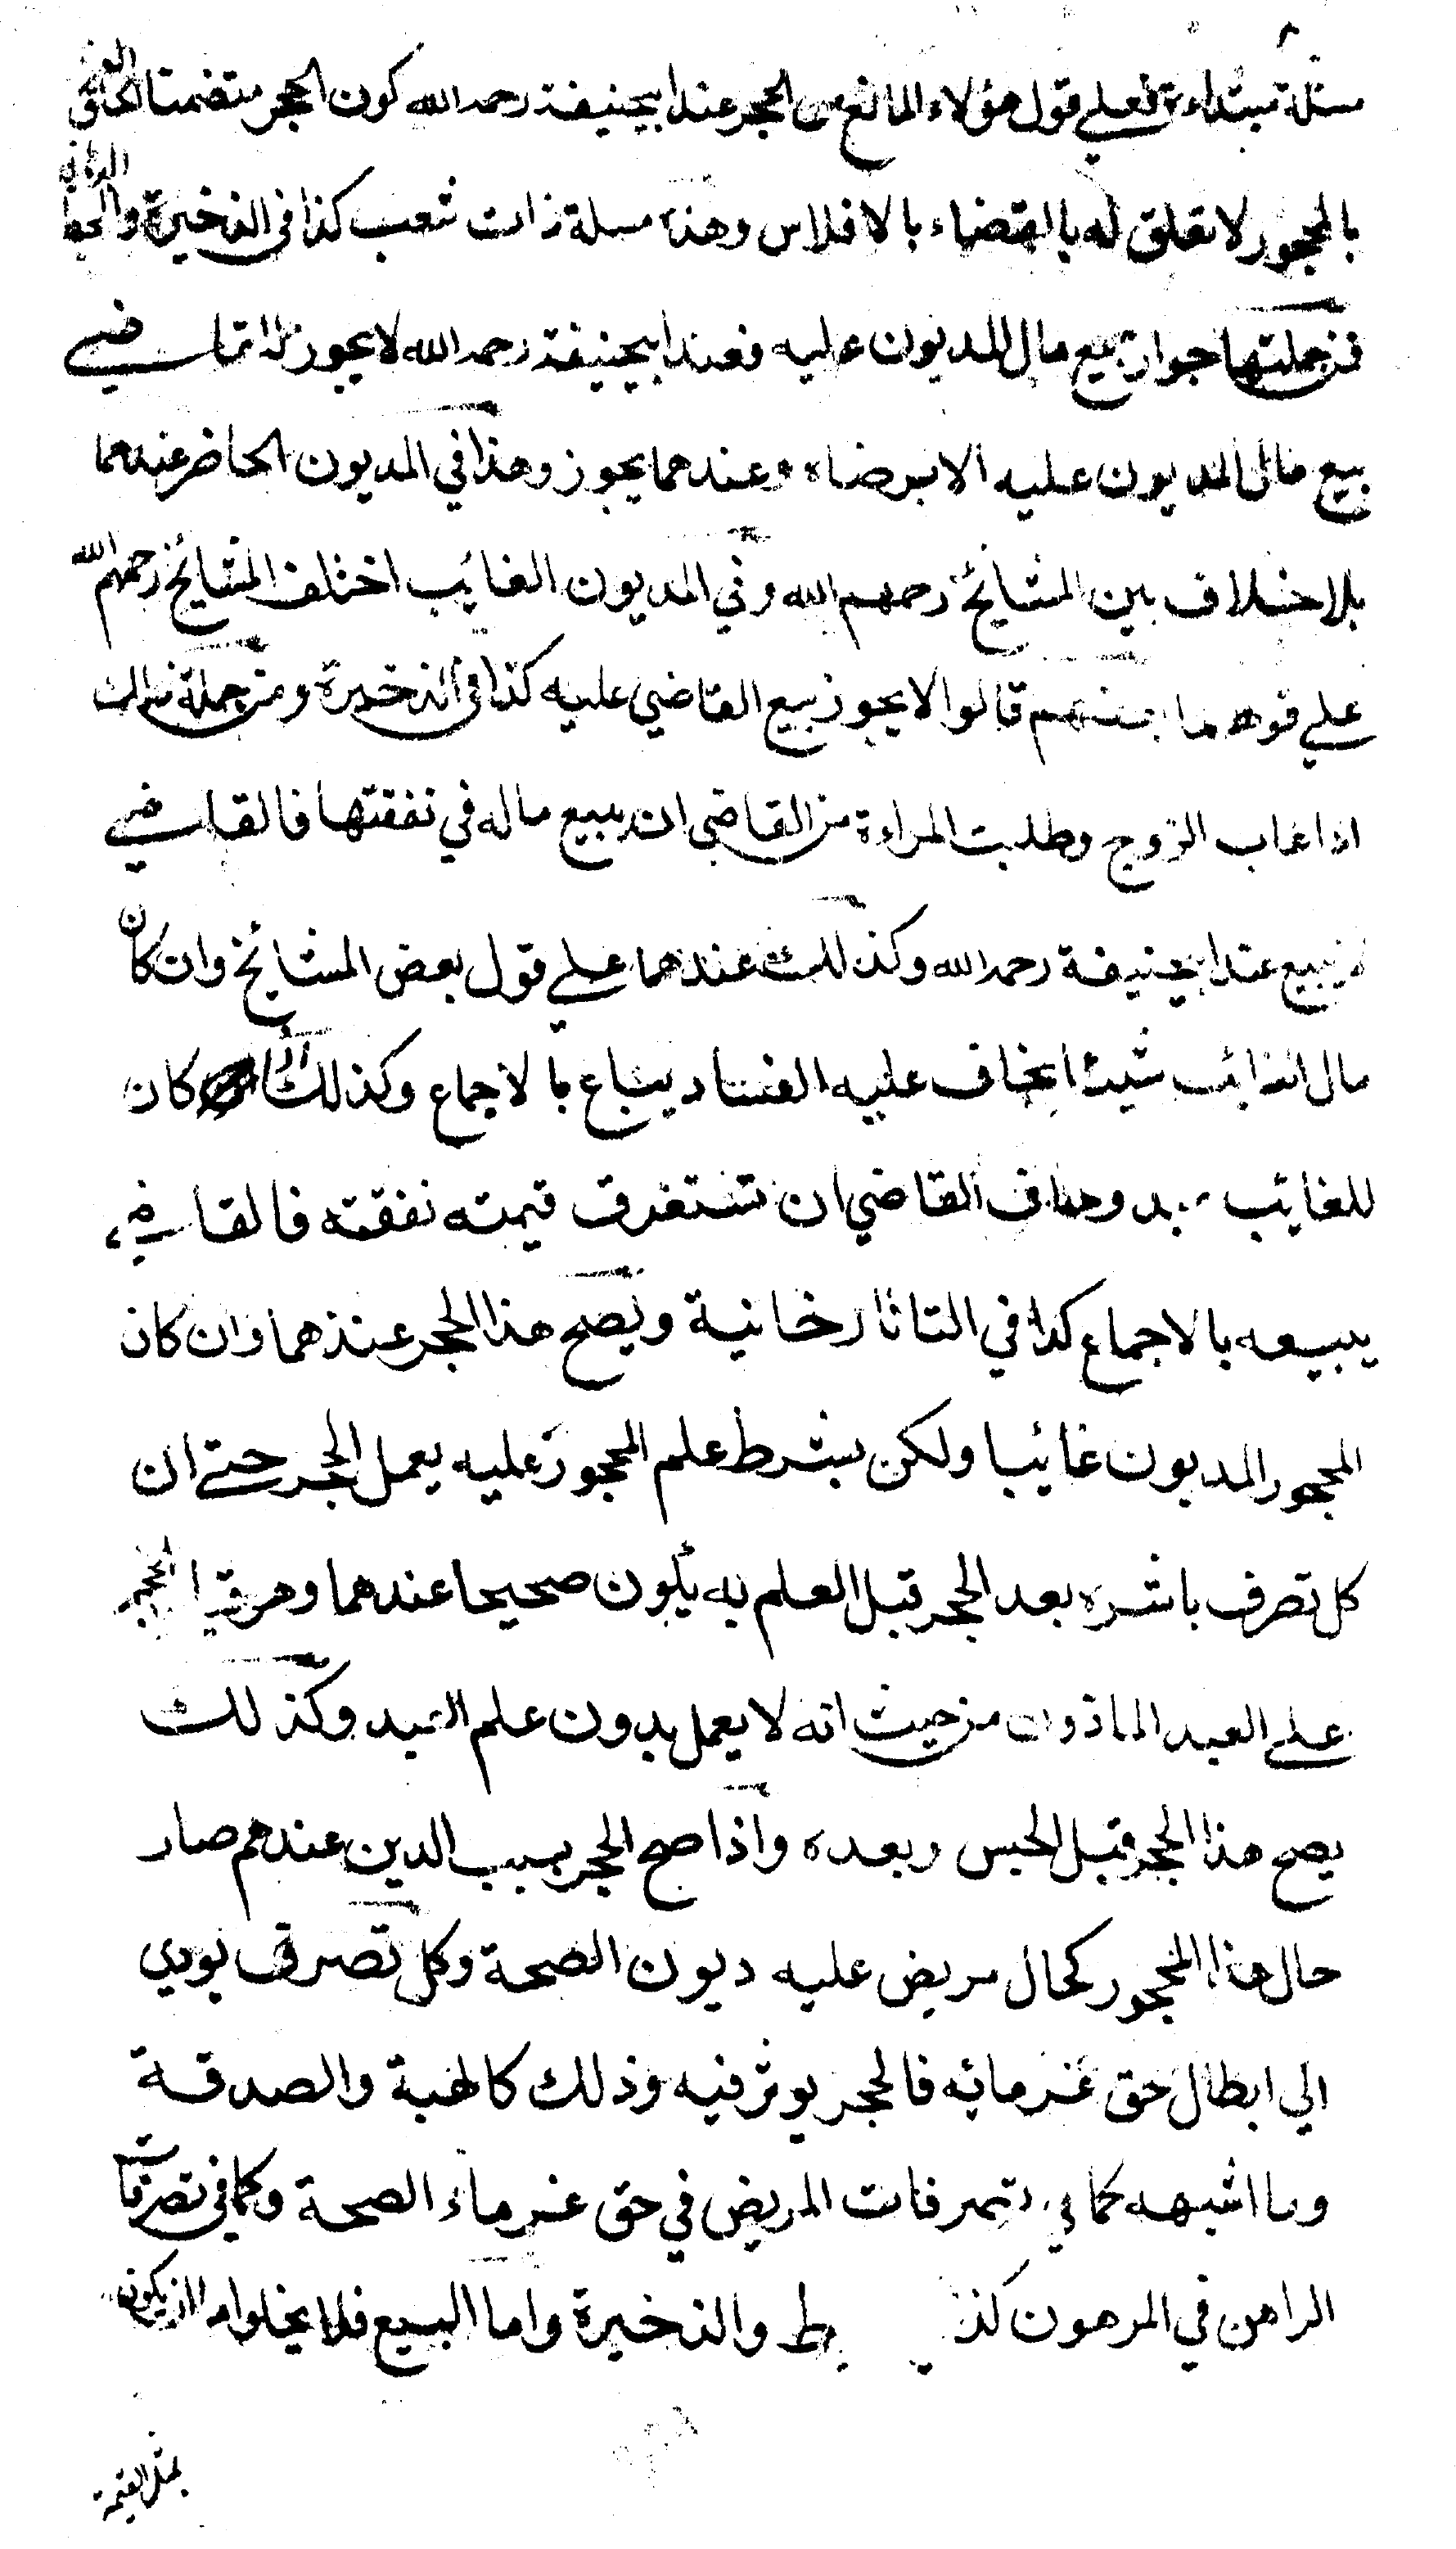 مسئلة مبتداءة فعلي قول هؤلاء المانع من الحجر عند ابيحنيفة رحمه الله كون الحجر متضمنا الحاق
بالمحجور لا تعلق له بالقضاء بالافلاس وهذه مسلة ذات شعب كذا في الذخيرة
فمن جملتها جواز بيع مال المديون عليه فعند ابيحنيفة رحمه الله لا يجوز للقاضي
بيع مال المديون عليه الا برضاه وعندهما يجوز وهذا في المديون الحاضر عندهما
بلا خلاف بين المشائخ رحمهم الله وفي المديون الغايب اختلف المشائخ رحمهم الله
علي قولهما بعضهم قالوا لا يجوز بيع القاضي عليه كذا في الذخيرة ومن جملة ذلك
اذا غاب الزوج وطلبت المراءة من القاضي ان يبيع ماله في نفقتها فالقاضي
لا يبيع عند ابيحنيفة رحمه الله وكذلك عندهما علي قول بعض المشائخ وان كان
مال الغائب شيئا يخاف عليه الفساد يباع بالاجماع وكذلك اذا كان
للغايب عبد وخاف القاضي ان تستغرق قيمته نفقته فالقاضي
يبيعه بالاجماع كذا في التاتارخانية ويصح هذا الحجر عندهما وان كان
المحجور المديون غائبا ولكن بشرط علم المحجور عليه يعمل الحجر حتي ان
كل تصرف باشره بعد الحجر قبل العلم به يكون صحيحا عندهما وهو الحجر
علي العبد الماذون من حيث انه لا يعمل بدون علم العبد وكذلك
يصح هذا الحجر قبل الحبس وبعده واذا صح الحجر بسبب الدين عندهم صار
حال هذا المحجور كحال مريض عليه ديون الصحة وكل تصرف يودي
الي ابطال حق غرمائه فالحجر يوثر فيه وذلك كالهبة والصدقة
وما اشبهه كما في تصرفات المريض في حق غرماء الصحة وكما في تصرفات
الراهن في المرهون كذا والذخيرة واما البيع فلا يخلوا اما ان يكون
بمثل القيمة